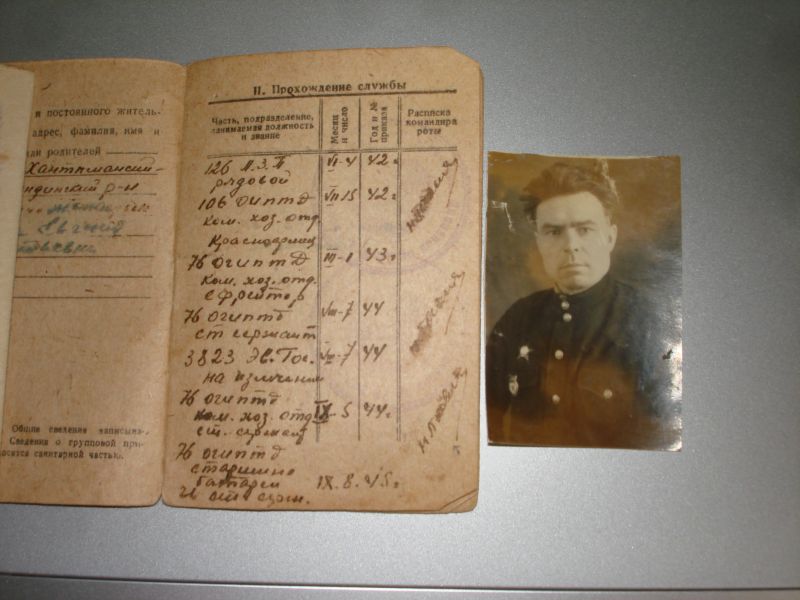 и постоянного житель-
адрес, фамилия, имя и
ли родителей
Хантымансий-
ндинский р-н
Общие сведения записыва-
Сведения о групповой при-
осятся санитарной частью.
II. Прохождение службы
Часть, подразделение, занимаемая должность и звание
Месяц и число
Год и № приказа
Расписка командира роты
126 П.З.П VI-4 42г
рядовой
106 ОИПТД VII 15 42г
ком. хоз. отд.
Красноармиц
76 ОГИПТД III-1 43г
ком. хоз. отд.
ефрейтор
76 ОГИПТД VIII-7 44
ст сержант
3823 Эв. Гос. 7 44
на излечении
76 ОГИПТД
ком. хоз. отд IX-5 44г
ст. сержант
76 ОГИПТД
старшина
батареи IX.8.45г
ст серж.